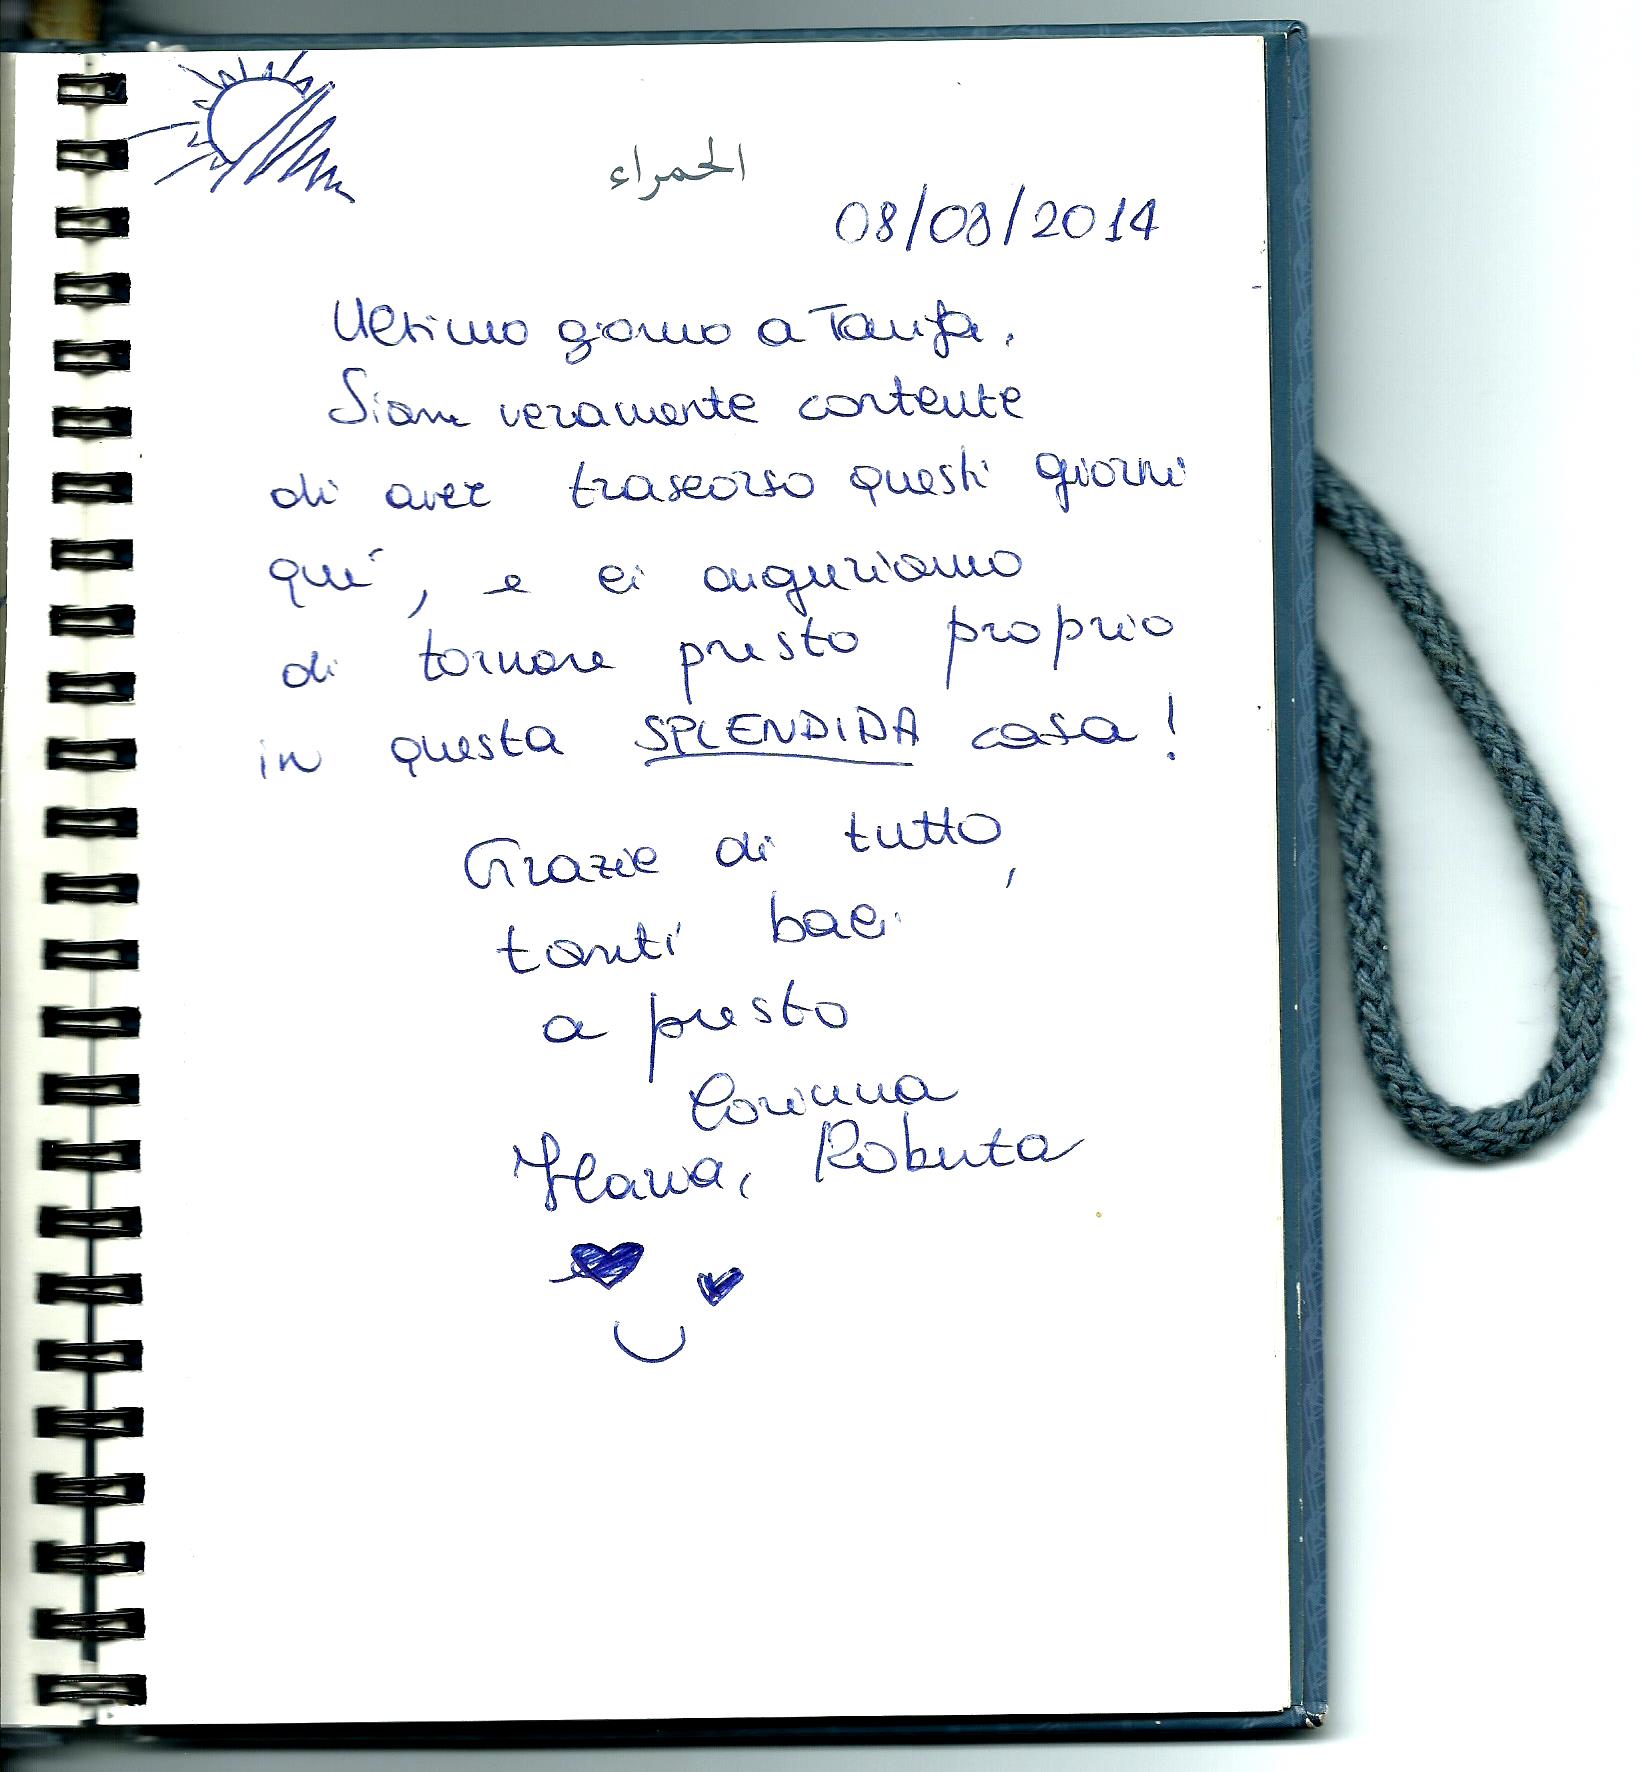 الحمراء
08/08/2014
Ultimo giorno a Tarifa.
Siam veramente contente
di aver trascorso questi giorni
qui, e ci auguriamo
di tornare presto proprio
in questa SPLENDIDA casa!
Grazie di tutto,
tanti baci
a presto
Corinna
Ilaria, Roberta